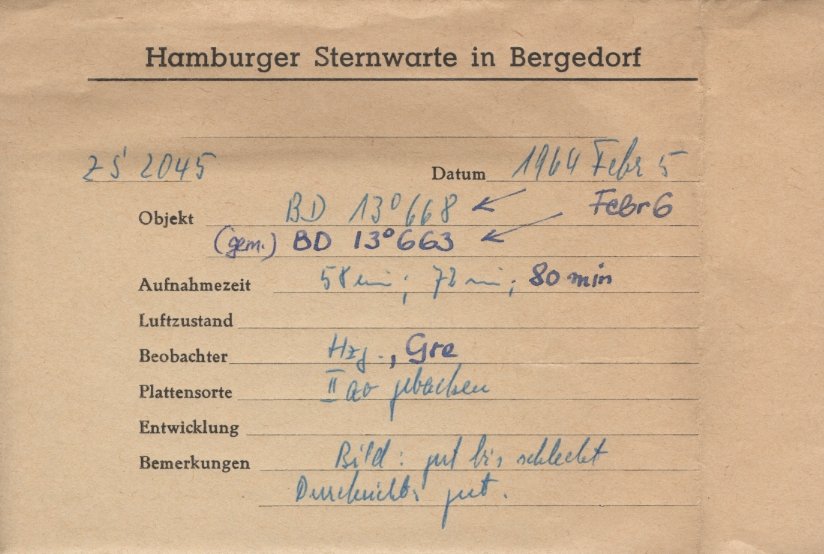 Hamburger Sternwarte in Bergedorf
ZS 2045 Datum 1964 Febr 5
Objekt BD 13°668 Febr 6
(gem.) BD 13°663
Aufnahmezeit 58 min; 72 min; 80 min
Luftzustand
Beobachter Hzg., Gre
Plattensorte II ao gebacken
Entwicklung
Bemerkungen Bild: gut bis schlecht
Durchsicht: gut.